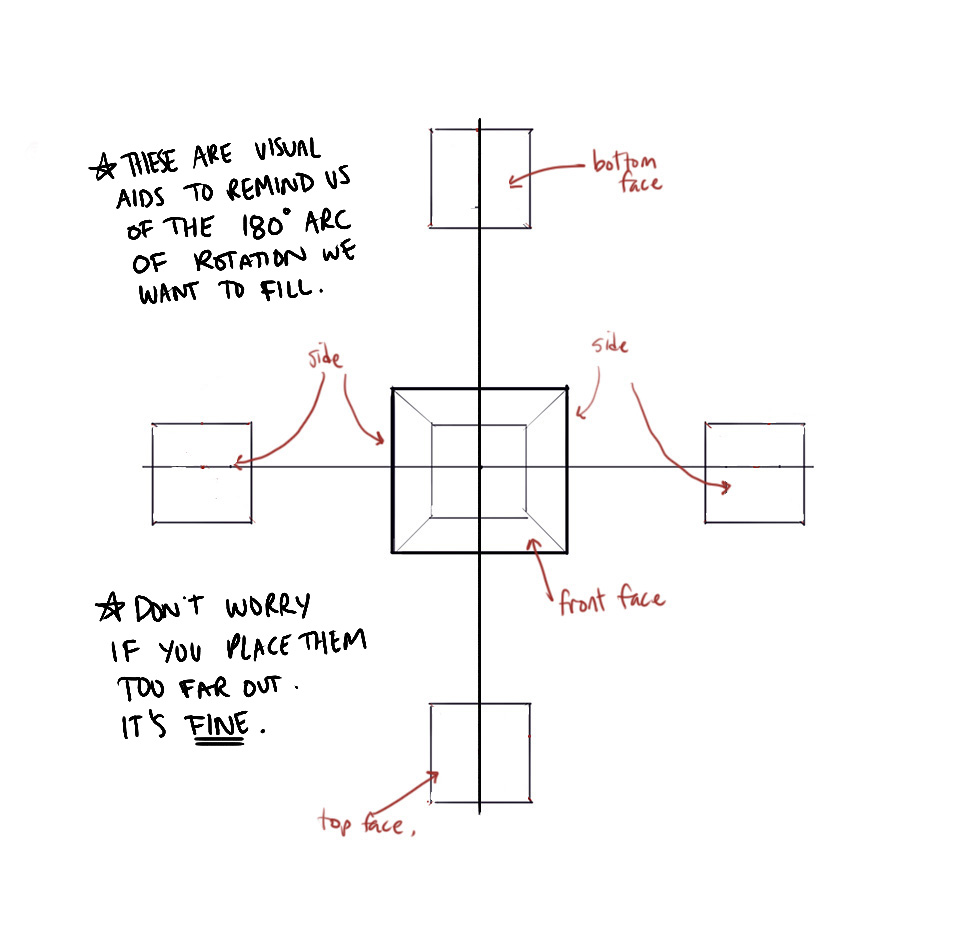 ☆ THESE ARE VISUAL
AIDS TO REMIND US
OF THE 180° ARC
OF ROTATION WE
WANT TO FILL.
bottom
face
side
side
front face
☆ DON'T WORRY
IF YOU PLACE THEM
TOO FAR OUT.
IT'S FINE.
top face,